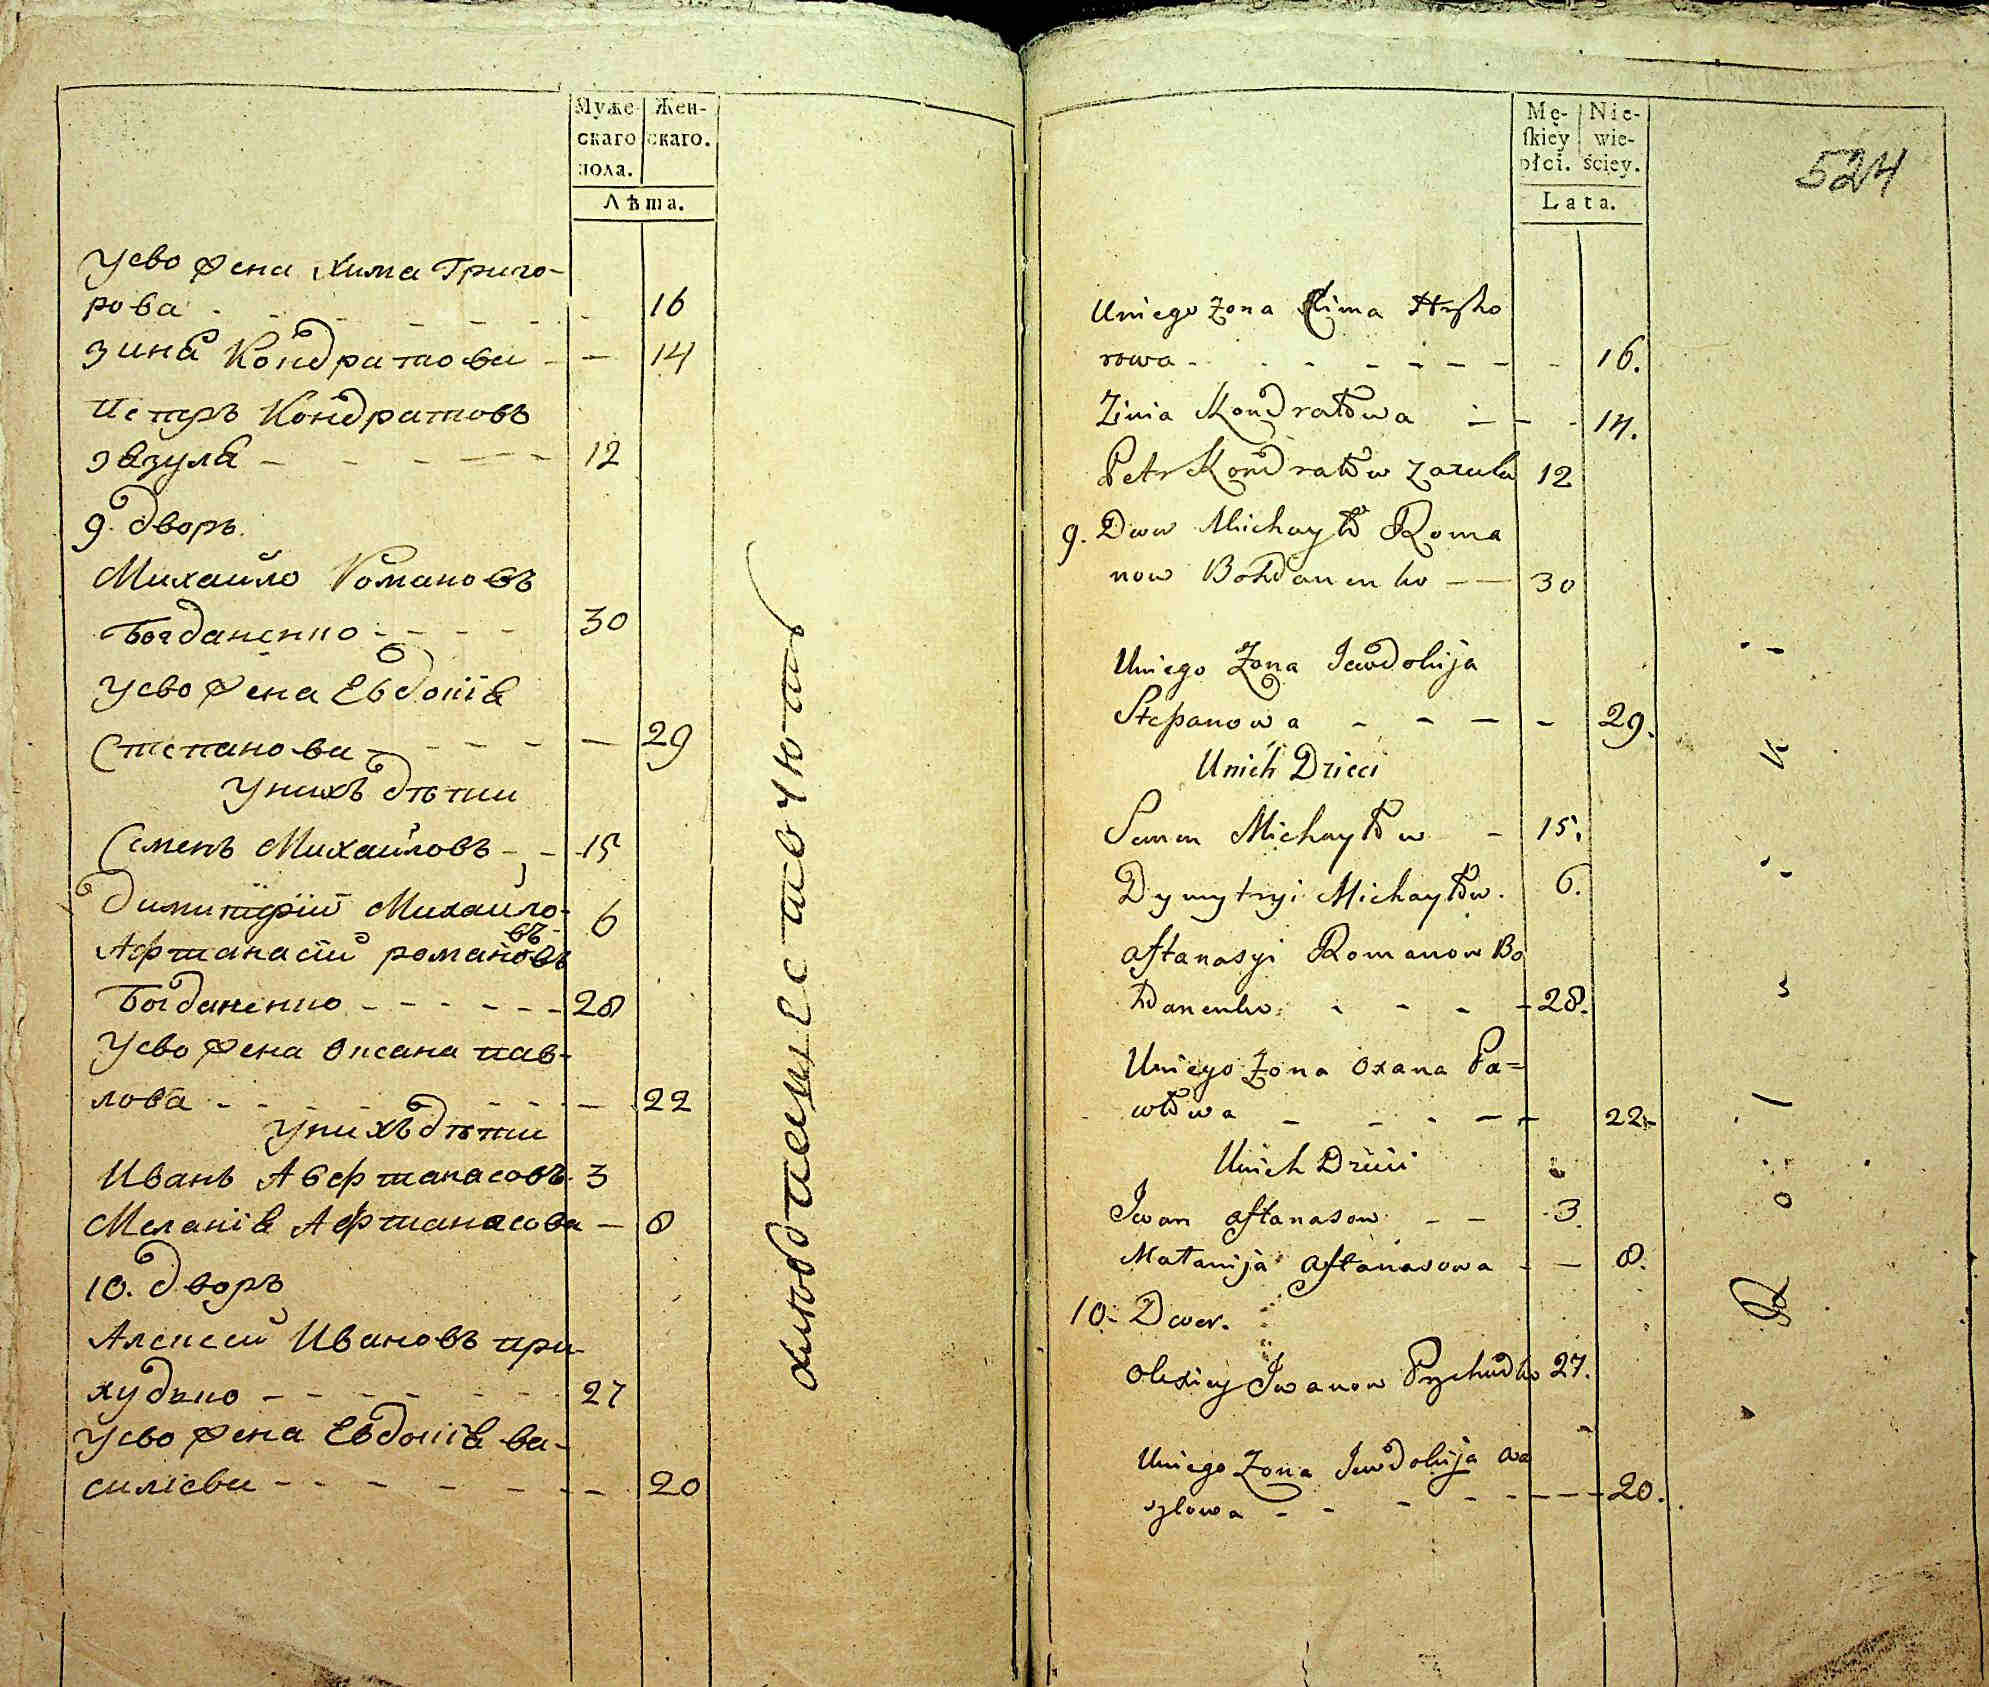 Муже-
скаго
пола.
Жен-
скаго.
Лѣта.
Уево жена Хима Григо-
рова - - - - - - 16
Зина Кондратова - - 14
Петръ Кондратовъ
Зазула - - - - - 12
9. дворъ.
Михайло Романовъ
Богданенко - - - - 30
Уево жена Евдокія
Степанова - - - - - 29
Унихъ дѣти
Семенъ Михайловъ - - 15
Димитрій Михайло-
въ- 6
Афтанасій романовъ
Богданенко - - - - - - 28
Уево жена Оксана пав-
лова - - - - - - - - 22
Унихъ дѣти
Иванъ Афтанасовъ. 3
Меланія Афтанасова - 8
10. дворъ
Алексей Ивановъ при-
худько - - - - - - 27
Уево жена Евдокія ва-
силіева - - - - - - - 20
Mę-
ſkiey
płci.
Nie-
wie-
ściey.
Lata.
524
Uniego Zona Hima Hryho
rowa - - - - - - - 16.
Zinia Kondratowa - - - 14.
Petr Kondratow Zazula 12
9. Dwor Michayło Roma
now Bohdanenko - - 30
Uniego Zona Jewdokija
Stepanowa - - - - 29.
Unich Dzieci
Semen Michayłow - 15.
Dymytryi Michayłow. 6.
Aftanasyi Romanow Bo
hdanenko. - - - - 28.
Uniego Zona Oxana Pa=
włowa - - - - - 22.
Unich Dzieci
Iwan Aftanasow - - 3.
Małanija Aftanasowa - - 8.
10. Dwor.
Olexiey Iwanow Prychudko 27.
Uniego Zona Jewdokija Wa
sylowa - - - - - - - 20.